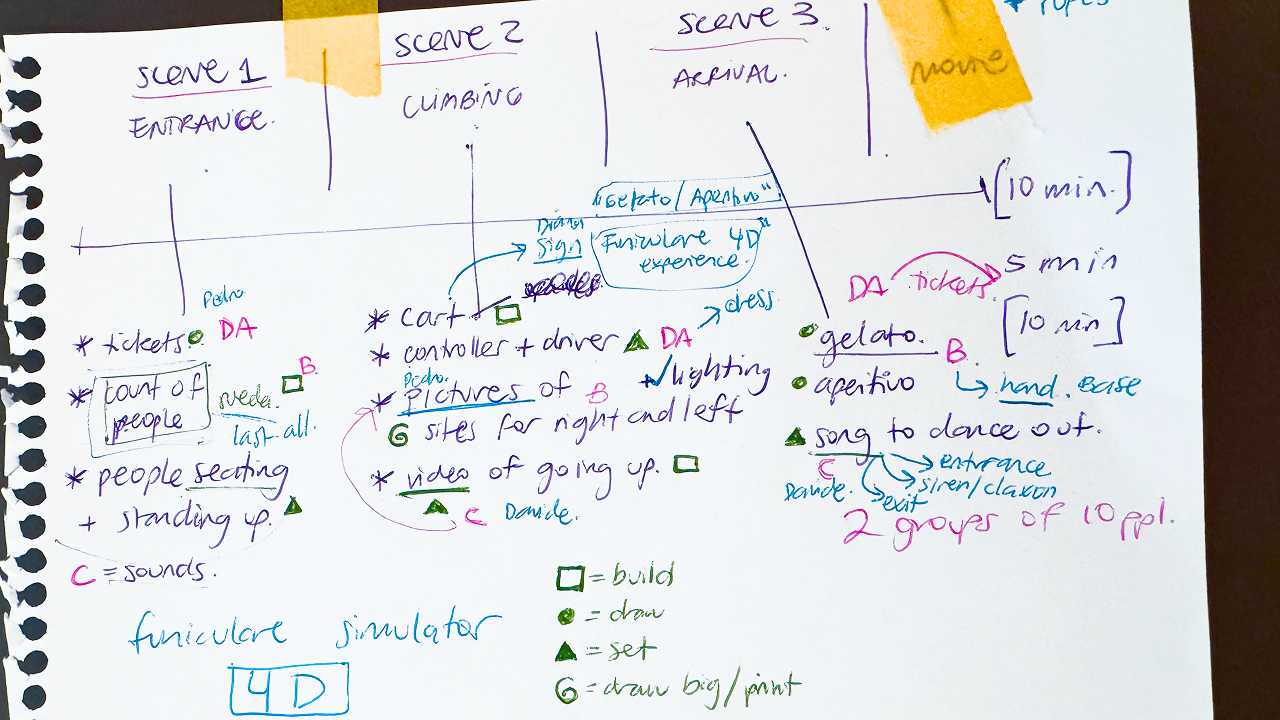 ropes
SCENE 1
ENTRANCE.
SCENE 2
CLIMBING
SCENE 3.
ARRIVAL.
movie
[10 min.]
"Gelato/Aperitivo"
sign
"Funiculare 4D"
experience.
Pedro
* tickets DA
* count of people B
last all.
* people seating
+ standing up.
C = sounds.
* cart
* controller + driver DA
dress
+ lighting
Pedro.
* pictures of B
G sites for right and left
* video of going up.
C Davide.
DA tickets.
5 min
[10 min]
gelato. B
hand. Base
aperitivo
song to dance out.
C
Davide.
entrance
siren/claxon
exit
2 groups of 10 ppl.
= build
= draw
= set
G = draw big/print
funiculare simulator
4D